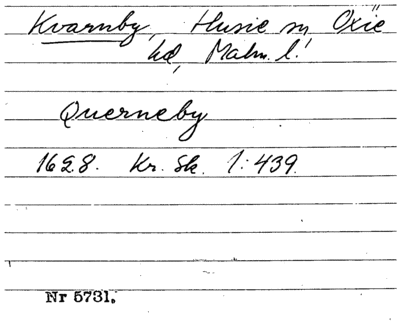 Kvarnby, Husie sn Oxie
hd, Malm. l.
Querneby
1628. Kr. Sk. 1:439.
Nr 5731.